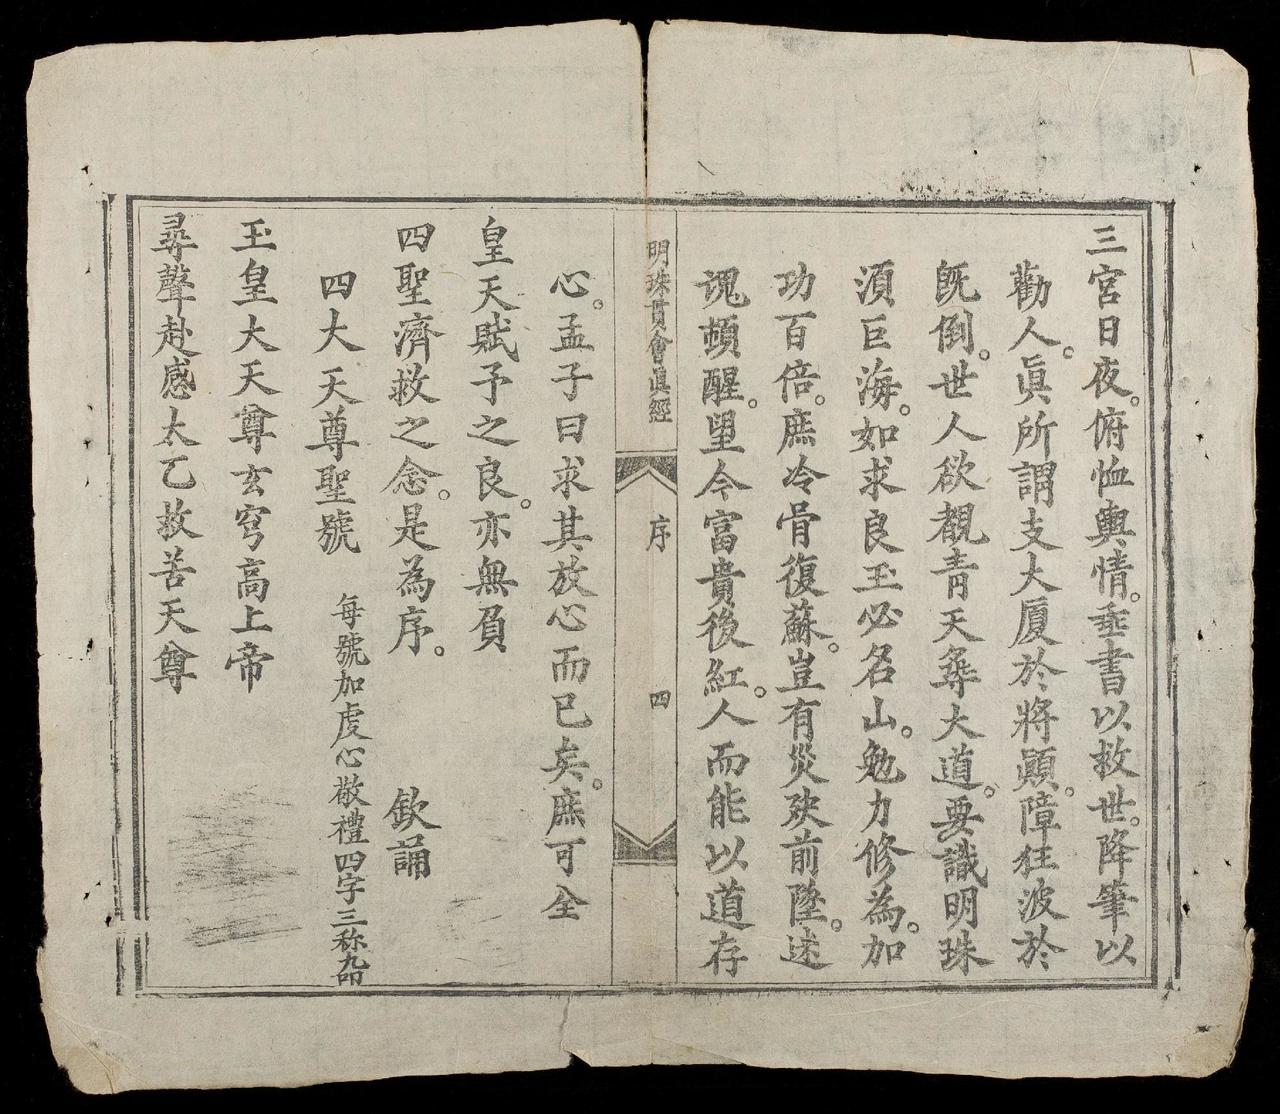 三宮日夜。俯恤輿情。垂書以救世。降筆以
勸人。眞所謂支大厦於將顚。障狂波於
旣倒。世人欲覩青天尋大道。要識明珠
須巨海。如求良玉必名山。勉力修為。加
功百倍。庶冷骨復蘇。豈有災殃前墮。述
愧頓醒。望今富貴後紅。人而能以道存
明珠貫會眞經
序
四
心。孟子曰求其放心而已矣。庶可全
皇天賦予之良。亦無負
四聖濟救之念。是為序。
欽誦
四大天尊聖號
每號加虔心敬禮四字三称九叩
玉皇大天尊玄穹高上帝
尋聲赴感太乙救苦天尊